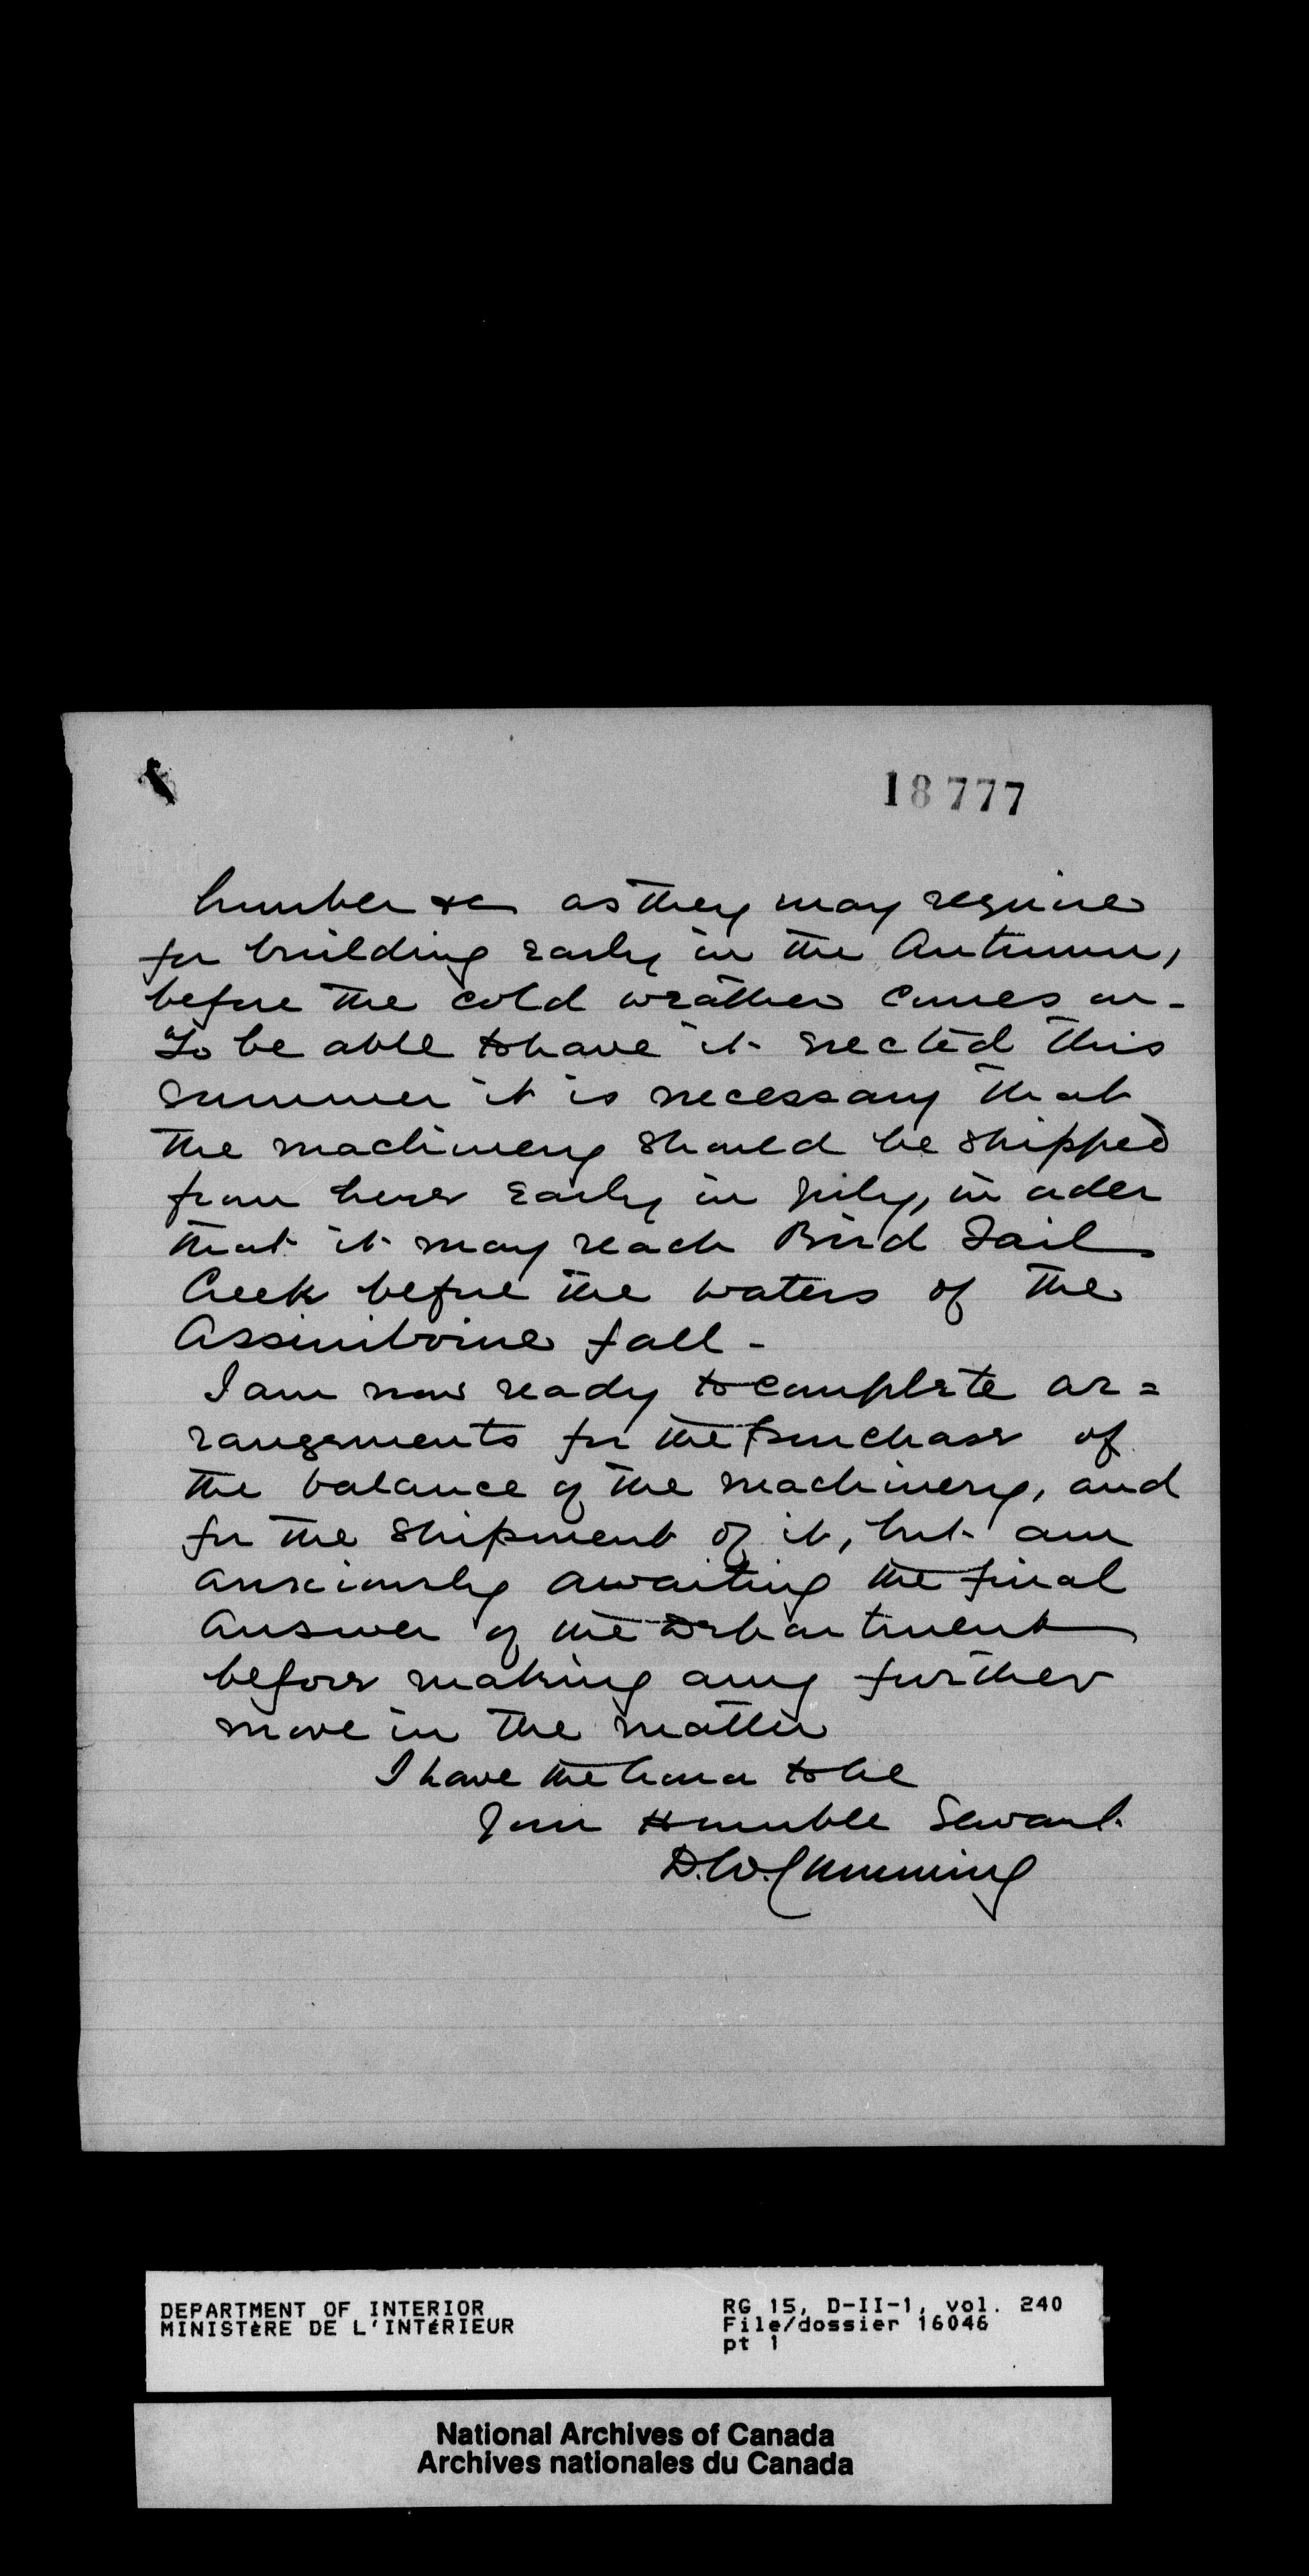 18777
lumber &c as they may require
for building early in the Autumn,
before the cold weather comes on -
To be able to have it erected this
summer it is necessary that
the machinery should be shipped
from here early in July, in order
that it may reach Bird Tail
Creek before the waters of the
Assiniboine fall -
I am now ready to complete ar=
rangements for the purchase of
the balance of the machinery, and
for the shipment of it, but am
anxiously awaiting the final
answer of the Department
before making any further
move in the matter
I have the honor to be
Your Humble Servant.
D.W. Cumming
DEPARTMENT OF INTERIOR
MINISTÈRE DE L'INTÉRIEUR
RG 15, D-II-1, vol. 240
File/dossier 16046
pt 1
National Archives of Canada
Archives nationales du Canada